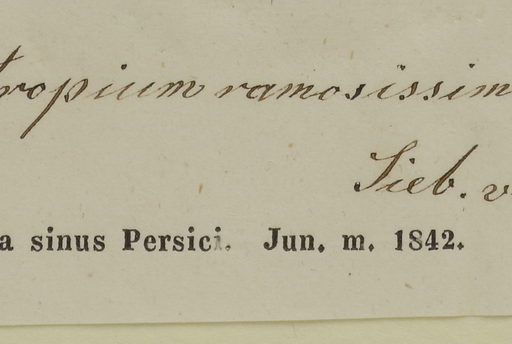 tropium ramosissim
Sieb. v
a sinus Persici. Jun. m. 1842.